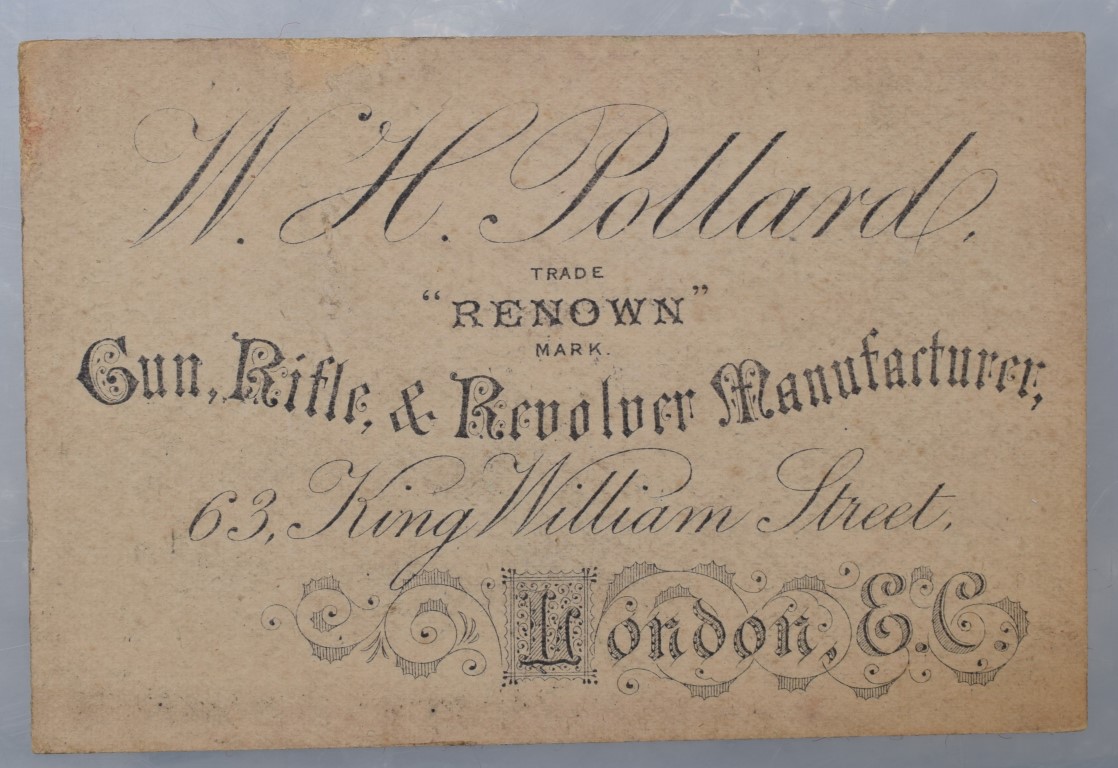 W. H. Pollard,
TRADE
“RENOWN”
MARK.
Gun, Rifle, & Revolver Manufacturer,
63, King William Street,
London, E.C.